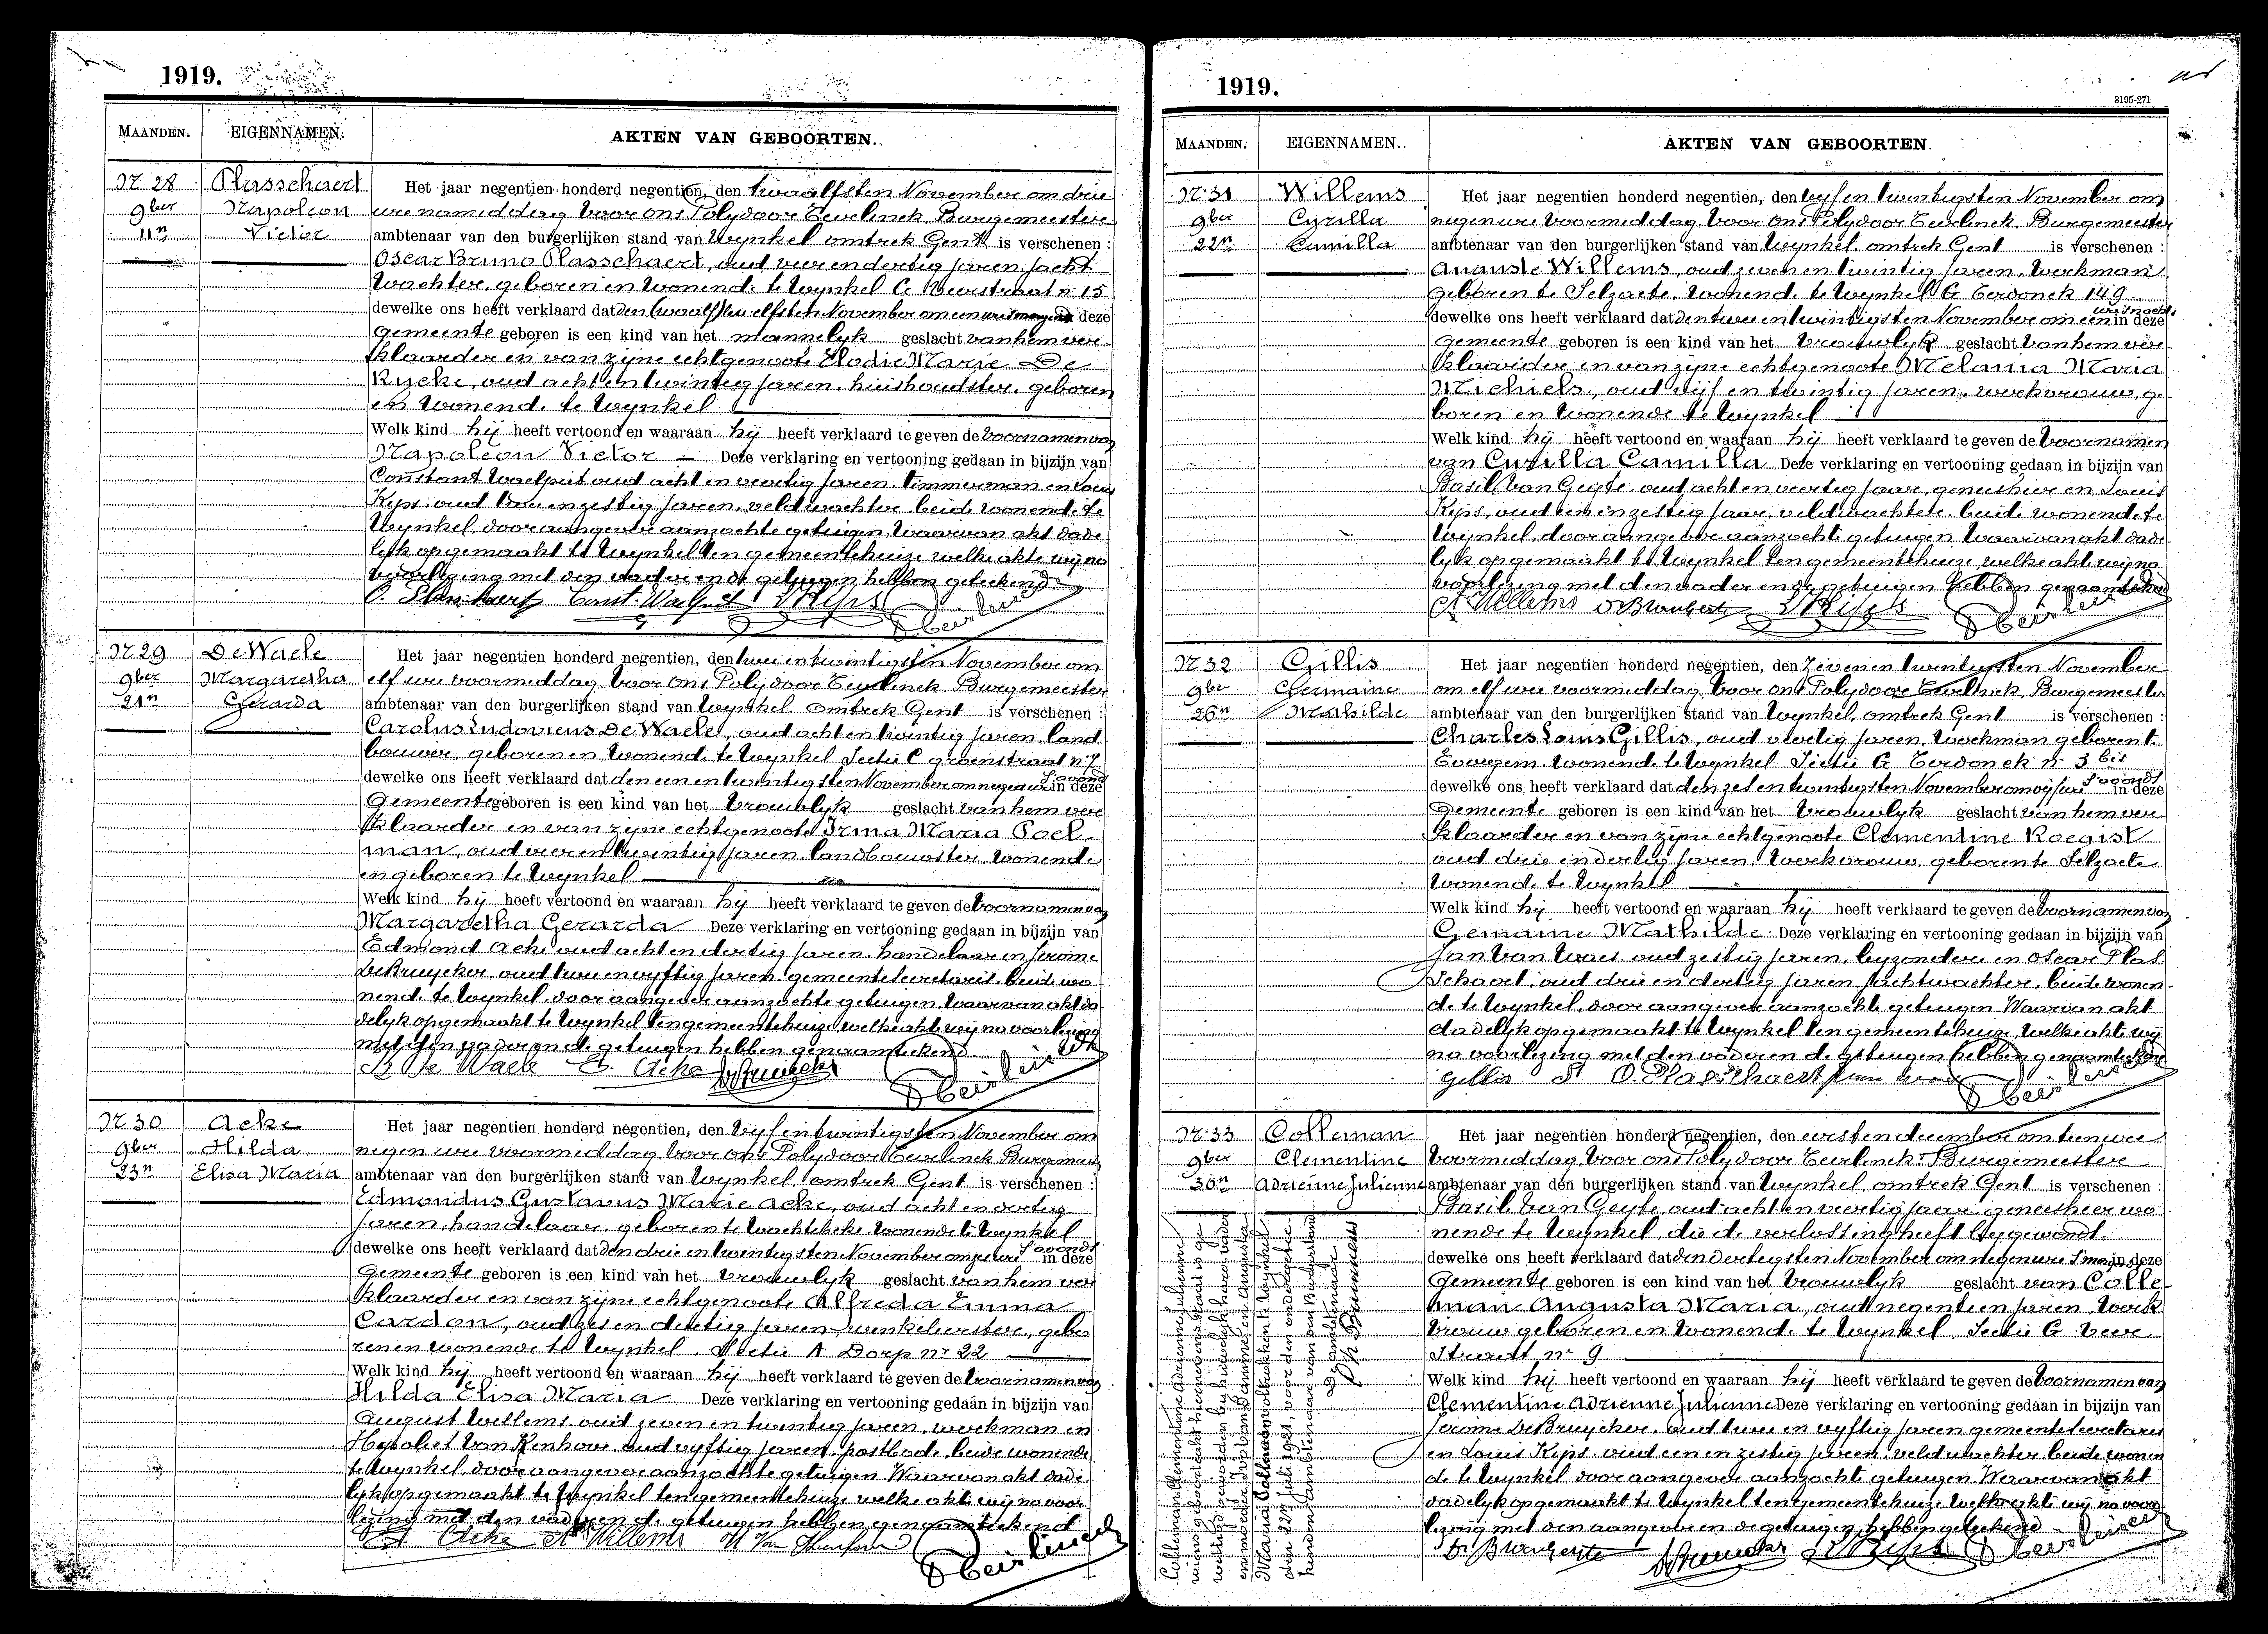 1919.
MAANDEN. EIGENNAMEN. AKTEN VAN GEBOORTEN.
N. 28
9ber
11n
Plasschaert
Napoleon
Victor
Het jaar negentien honderd negentien, den twaalfsten November om drie
ure namiddag voor ons Polydoor Eeurlinck Burgemeester
ambtenaar van den burgerlijken stand van Wynkel omtrek Gent is verschenen :
Oscar Bruno Plasschaert, oud vier en dertig jaren, jacht
wachter, geboren en wonende te Wynkel C Veerstraat n. 15
dewelke ons heeft verklaard dat den elfsten November om een ure in deze
Gemeente geboren is een kind van het mannelyk geslacht van hem ver
klaarder en van zijne echtgenoote Elodie Marie De
Rycke, oud acht en twintig jaren, huishoudster, geboren
en wonende te Wynkel
Welk kind hij heeft vertoond en waaraan hij heeft verklaard te geven de voornamen van
Napoleon Victor — Deze verklaring en vertooning gedaan in bijzijn van
Constant Waelput oud acht en veertig jaren, timmerman en Louis
Kips, oud een en zestig jaren, veldwachter beide wonende te
Wynkel, door aangever aanzochte getuigen. Waarvan akt dade
lyk opgemaakt te Wynkel ten gemeentehuize welke akte wij na
voorlezing met den vader en de getuigen hebben geteekend
N. 29
9ber
21n
De Waele
Margaretha
Gerarda
Het jaar negentien honderd negentien, den twee en twintigsten November om
elf ure voormiddag voor ons Polydoor Eeurlinck Burgemeester
ambtenaar van den burgerlijken stand van Wynkel omtrek Gent is verschenen :
Carolus Ludovicus De Waele, oud acht en twintig jaren land
bouwer, geboren en wonende te Wynkel Sectie C groenstraat n.
dewelke ons heeft verklaard dat den een en twintigsten November om negen ure s'avonds in deze
Gemeente geboren is een kind van het vrouwlyk geslacht van hem ver
klaarder en van zijne echtgenoote Irma Maria Poel
man, oud vier en twintig jaren landbouwster, wonende
en geboren te Wynkel
Welk kind hij heeft vertoond en waaraan hij heeft verklaard te geven de voornamen van
Margaretha Gerarda Deze verklaring en vertooning gedaan in bijzijn van
Edmond Acke oud acht en dertig jaren, handelaar en Jerome
De Bruycker, oud twee en vyftig jaren gemeentesecretaris beide wo
nende te Wynkel, door aangever aanzochte getuigen. Waarvan akt da
delyk opgemaakt te Wynkel ten gemeentehuize welke akte wij na voorlezing
met den vader en de getuigen hebben genaamteekend
De Waele E. Acke
N. 30
9ber
23n
Acke
Hilda
Elisa Maria
Het jaar negentien honderd negentien, den vyf en twintigsten November om
negen ure voormiddag voor ons Polydoor Eeurlinck Burgemees
ambtenaar van den burgerlijken stand van Wynkel, omtrek Gent is verschenen :
Edmondus Gustavus Marie Acke, oud acht en dertig
jaren, handelaar, geboren te Wachtebeke wonende te Wynkel
dewelke ons heeft verklaard dat den drie en twintigsten November om ure s'avonds in deze
Gemeente geboren is een kind van het vrouwlyk geslacht van hem ver
klaarder en van zijne echtgenoote Alfreda Emma
Cardon, oud zes en dertig jaren, winkelierster, gebo
ren en wonende te Wynkel, Sectie A Dorp nr 22
Welk kind hij heeft vertoond en waaraan hij heeft verklaard te geven de voornamen van
Hilda Elisa Maria Deze verklaring en vertooning gedaan in bijzijn van
August Willems oud zeven en twintig jaren, workman en
Hypoliet Van Renhove oud vyftig jaren, postbode beide wonende
te Wynkel door aangever aanzochte getuigen. Waarvan akt dade
lyk opgemaakt te Wynkel ten gemeentehuize welke akte wij na voor
lezing met den vader en de getuigen hebben genaamteekend
Acke A Willems
1919.
3195-271
MAANDEN. EIGENNAMEN. AKTEN VAN GEBOORTEN.
N. 31
9ber
22n
Willems
Cyrilla
Camilla
Het jaar negentien honderd negentien, den vyf en twintigsten November om
negen ure voormiddag voor ons Polydoor Eeurlinck, Burgemeester
ambtenaar van den burgerlijken stand van Wynkel omtrek Gent is verschenen :
Auguste Willems, oud zeven en twintig jaren, workman
geboren te Selzaete, wonende te Wynkel G Eerdonck 149
dewelke ons heeft verklaard dat den twee en twintigsten November om een ure in deze
Gemeente geboren is een kind van het vrouwlyk geslacht van hem ver
klaarder en van zijne echtgenoote Melania Maria
Michiels, oud vijf en twintig jaren, werkvrouw, ge
boren en wonende te Wynkel
Welk kind hij heeft vertoond en waaraan hij heeft verklaard te geven de voornamen
van Cyrilla Camilla Deze verklaring en vertooning gedaan in bijzijn van
Basil Van Geyte, oud acht en veertig jaar, geneesheer en Louis
Kips, oud een en zestig jaar, veldwachter, beide wonende te
Wynkel, door aangever aanzochte getuigen Waarvan akt dade
lyk opgemaakt te Wynkel ten gemeentehuize, welke akte wij na
voorlezing met den vader en de getuigen hebben genaamteekend
A. Willems
N. 32
9ber
26n
Gillis
Germaine
Mathilde
Het jaar negentien honderd negentien, den Zeven en twintigsten November
om elf ure voormiddag voor ons Polydoor Eeurlinck, Burgemeester
ambtenaar van den burgerlijken stand van Wynkel, omtrek Gent is verschenen :
Charles Louis Gillis, oud veertig jaren, workman geboren te
Evergem, wonende te Wynkel Sectie G Eerdonck n. 3 bis
dewelke ons heeft verklaard dat den zes en twintigsten November om vijf ure s'avonds in deze
Gemeente geboren is een kind van het vrouwlyk geslacht van hem ver
klaarder en van zijne echtgenoote Clementine Roegist
oud drie en dertig jaren, werkvrouw, geboren te Selzaete
wonende te Wynkel
Welk kind hij heeft vertoond en waaraan hij heeft verklaard te geven de voornamen van
Germaine Mathilde Deze verklaring en vertooning gedaan in bijzijn van
Jan Van Waes oud zestig jaren, byzondere en Oscar Plas
schaert, oud drie en dertig jaren jachtwachter, beide wonen
de te Wynkel, door aangever aanzochte getuigen Waarvan akt
dadelyk opgemaakt te Wynkel ten gemeentehuize, welke akte wij
na voorlezing met den vader en de getuigen hebben genaamteekend
Gillis O. Plasschaert
N. 33
9ber
30n
Colleman
Clementine
Adrienne Julienne
Het jaar negentien honderd negentien, den eersten december om tien ure
voormiddag voor ons Polydoor Eeurlinck Burgemeester
ambtenaar van den burgerlijken stand van Wynkel, omtrek Gent is verschenen :
Basil Van Geyte, oud acht en veertig jaar geneesheer wo
nende te Wynkel, die de verlossing heeft bygewoond
dewelke ons heeft verklaard dat den dertigsten November om negen ure in deze
Gemeente geboren is een kind van het vrouwlyk geslacht van Colle
man Augusta Maria, oud negentien jaren, werk
vrouw geboren en wonende te Wynkel, Sectie C Veer
straat nr 9
Welk kind hij heeft vertoond en waaraan hij heeft verklaard te geven de voornamen van
Clementine Adrienne Julienne Deze verklaring en vertooning gedaan in bijzijn van
Jerome De Bruycker, oud twee en vyftig jaren gemeentesecretaris
en Louis Kips, oud een en zestig jaren, veldwachter beide wonen
de te Wynkel door aangever aanzochte getuigen. Waarvan akt
dadelyk opgemaakt te Wynkel ten gemeentehuize. Welke akte wij na voor
lezing met den aangever en de getuigen, hebben geteekend
Colleman Clementine Adrienne Julienne